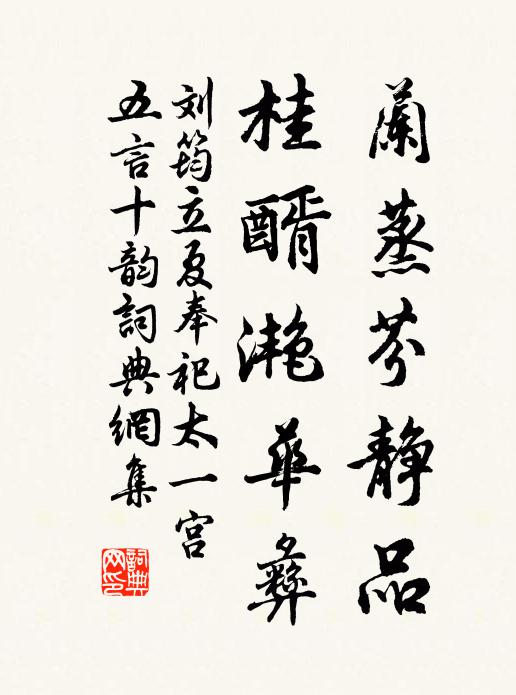 蘭蒸芬静品
桂醑滟華彝
刘筠立夏奉祀太一宫
五言十韵詞典網集
詞典
网印